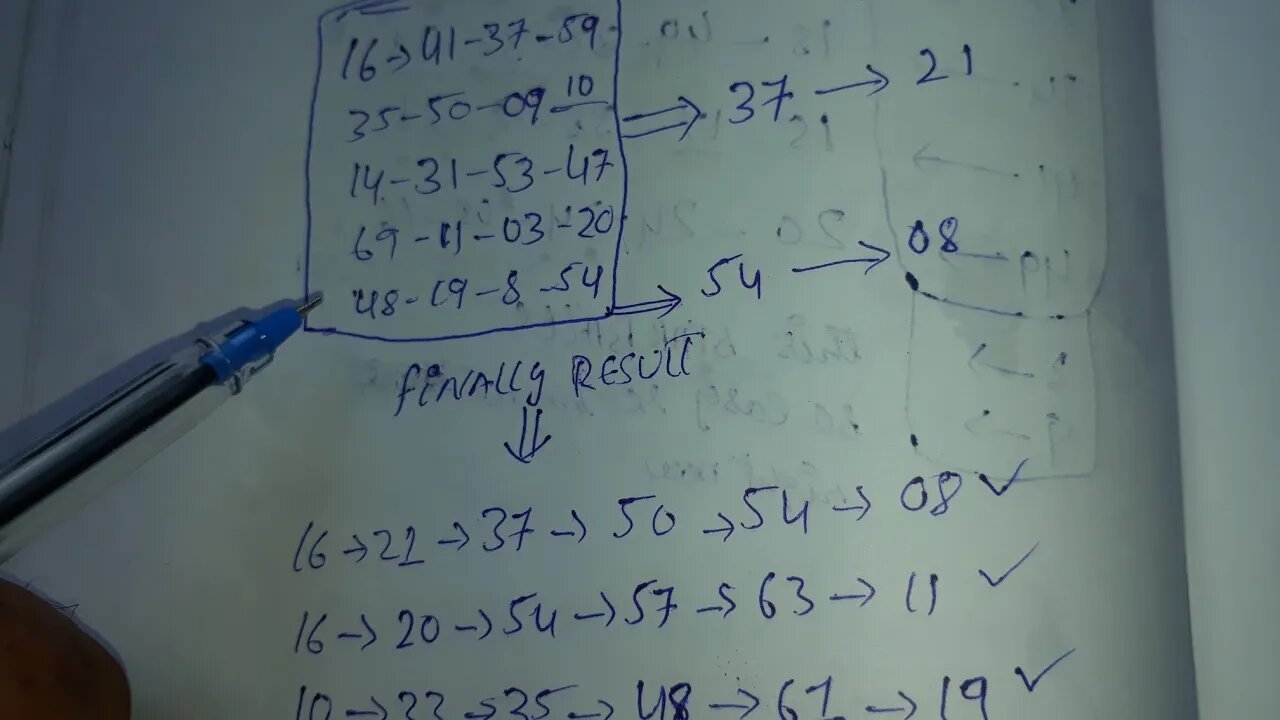 16→41-37-59
35-50-09-10 ⇒ 37 → 21
14-31-53-47
69-11-03-20
48-19-8-54 ⇒ 54 → 08
FINALLY RESULT
⇓
16→21→37→50→54→08 ✓
16→20→54→57→63→11 ✓
10→22→35→48→61→19 ✓